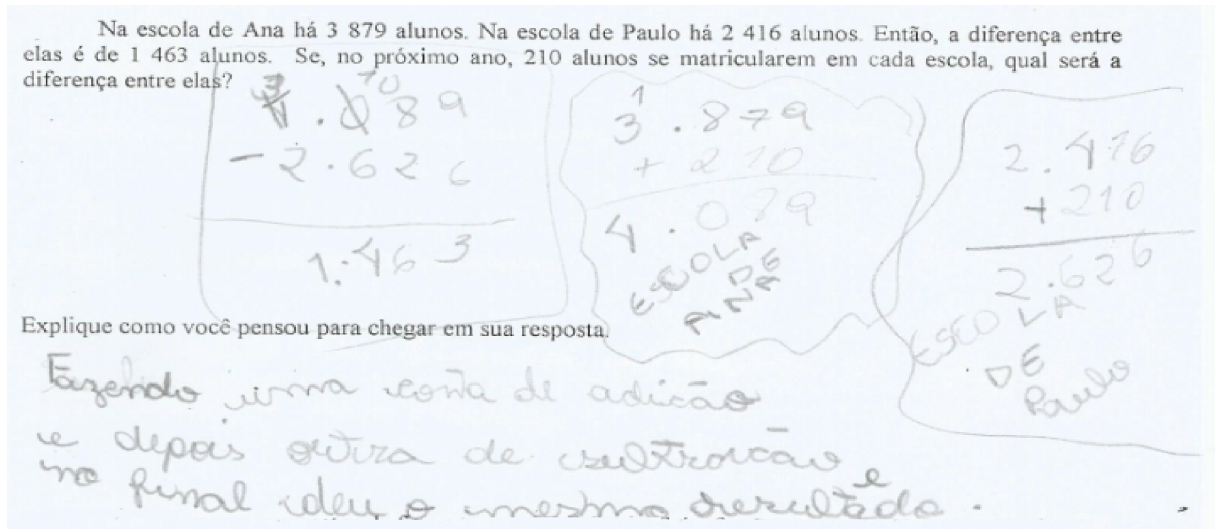 Na escola de Ana há 3 879 alunos. Na escola de Paulo há 2 416 alunos. Então, a diferença entre
elas é de 1 463 alunos. Se, no próximo ano, 210 alunos se matricularem em cada escola, qual será a
diferença entre elas?
3 10
4.089
- 2.626
1.463
1
3.879
+ 210
4.089
ESCOLA
DE
ANA
2.416
+ 210
2.626
ESCOLA
DE
Paulo
Explique como você pensou para chegar em sua resposta.
Fazendo uma conta de adicão
e depois outra de sultracão e
no final deu o mesmo resultado.